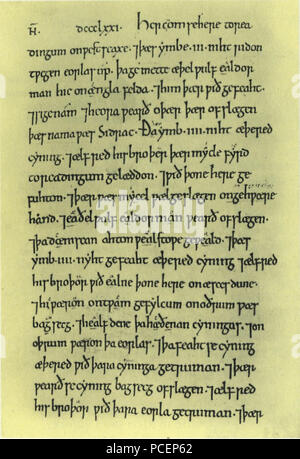 N̄. DCCCLXXI. Her com se here to rea
dingum on west seaxe. ⁊ þæs ymbe .iii. niht ridon
twegen eorlas up. þa gemette æþelwulf ealdor
man hie on engla felda. ⁊ him þær wið gefeaht.
⁊ sige nam. ⁊ heora wearð oþær þær ofslægen
þæs nama wæs Sidrac. Ða ymb .iiii. niht æþered
cyning. ⁊ ælfred his broþer þær mycle fyrd
to readingum gelæddon. ⁊ wið þone here ge
fuhton. ⁊ þær wæs mycel wælgeslægen on gehwæþere
hand. ⁊ eaðelwulf ealdorman wearð ofslægen.
⁊ þa deniscan ahton wælstowe geweald. ⁊ þæs
ymb .iiii. nyht gefeaht æþered cyning ⁊ ælfred
his broþor wið ealne þone here on æscesdune.
⁊ hi wæron on twam gefylcum on oðrum wæs
bagsecg. ⁊ healfdene þa hæðenan cyningas. ⁊ on
oþrum wæron þa eorlas. ⁊ þa feaht se cyning
æþered wið þara cyninga getruman. ⁊ þær
wearð se cyning bagsecg ofslægen. ⁊ ælfred
his broþor wið þara eorla getruman. ⁊ þær
alamy
PCEP62